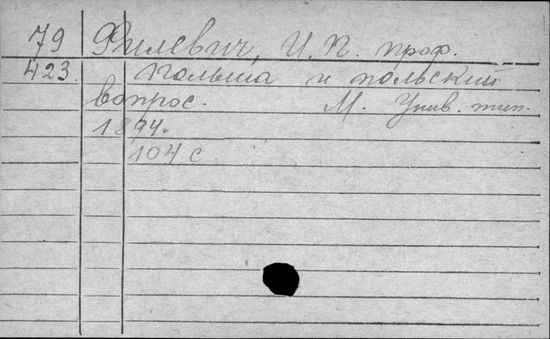 79 Филевич, И. П. проф.
423. Польша и польский
вопрос. М. Унив. тип.
1894.
104 с